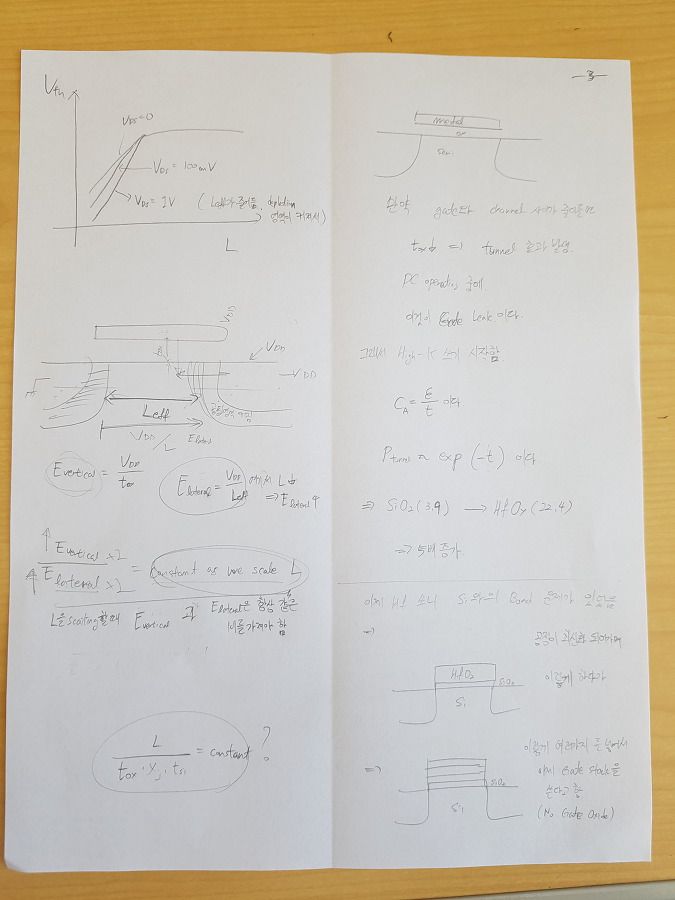 Vth
VDS=0
VDS = 100mV
VDS = 1V ( Leff가 줄어듦. depletion
영역이 커져서)
L
VDD
VDD
VDD
Leff
VDD/L Elateral
Evertical = VDD/tox
Elateral = VDD/Leff 에서 L↓
⇒ Elateral ↑
↑ Evertical ×2
↑ Elateral ×2
= Constant as we scale L
L을 scaling할때 Evertical 과 Elateral은 항상 같은
비를 가져야 함
L/(tox · Xj · tsi) = constant ?
3
metal
ox
Sem.
만약 gate와 channel 사이가 줄어들면
tox↓ ⇒ tunnel 효과 발생.
DC operating
이것이 Gate Leak 이다.
그래서 High-K 쓰기 시작함
CA = ε/t 이다
Ptunnel ∝ exp (-t) 이다
⇒ SiO2(3.9) → HfOx(22.4)
⇒ 5배 증가.
이제 Si와의 Bond 문제가 있었음
⇒ 공정이 최신화 되어가며
HfO2
SiO2
Si
이렇게 하다가
⇒ 이렇게 여러가지 를 넣어서
이제 Gate Stack을
쓴다고 함
(No Gate Oxide)
SiO2
Si